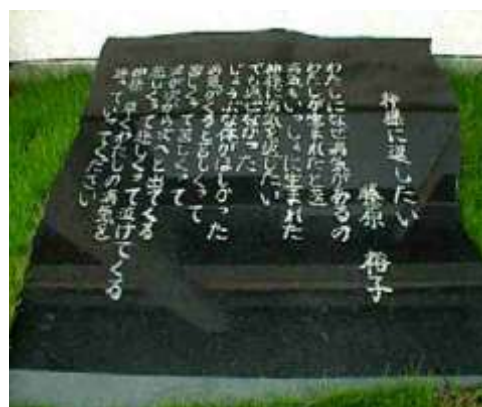 神様に返したい
藤原 裕子
わたしになぜ病気があるの
わたしが生まれたとき
病気もいっしょに生まれた
神様に病気を返したい
でも
じょうぶな体がほしかった
病気がくると
苦しくって苦しくって
次へと出てくる
悲しくって悲しくって泣けてくる
神様 早くわたしの病気を
持っていってください